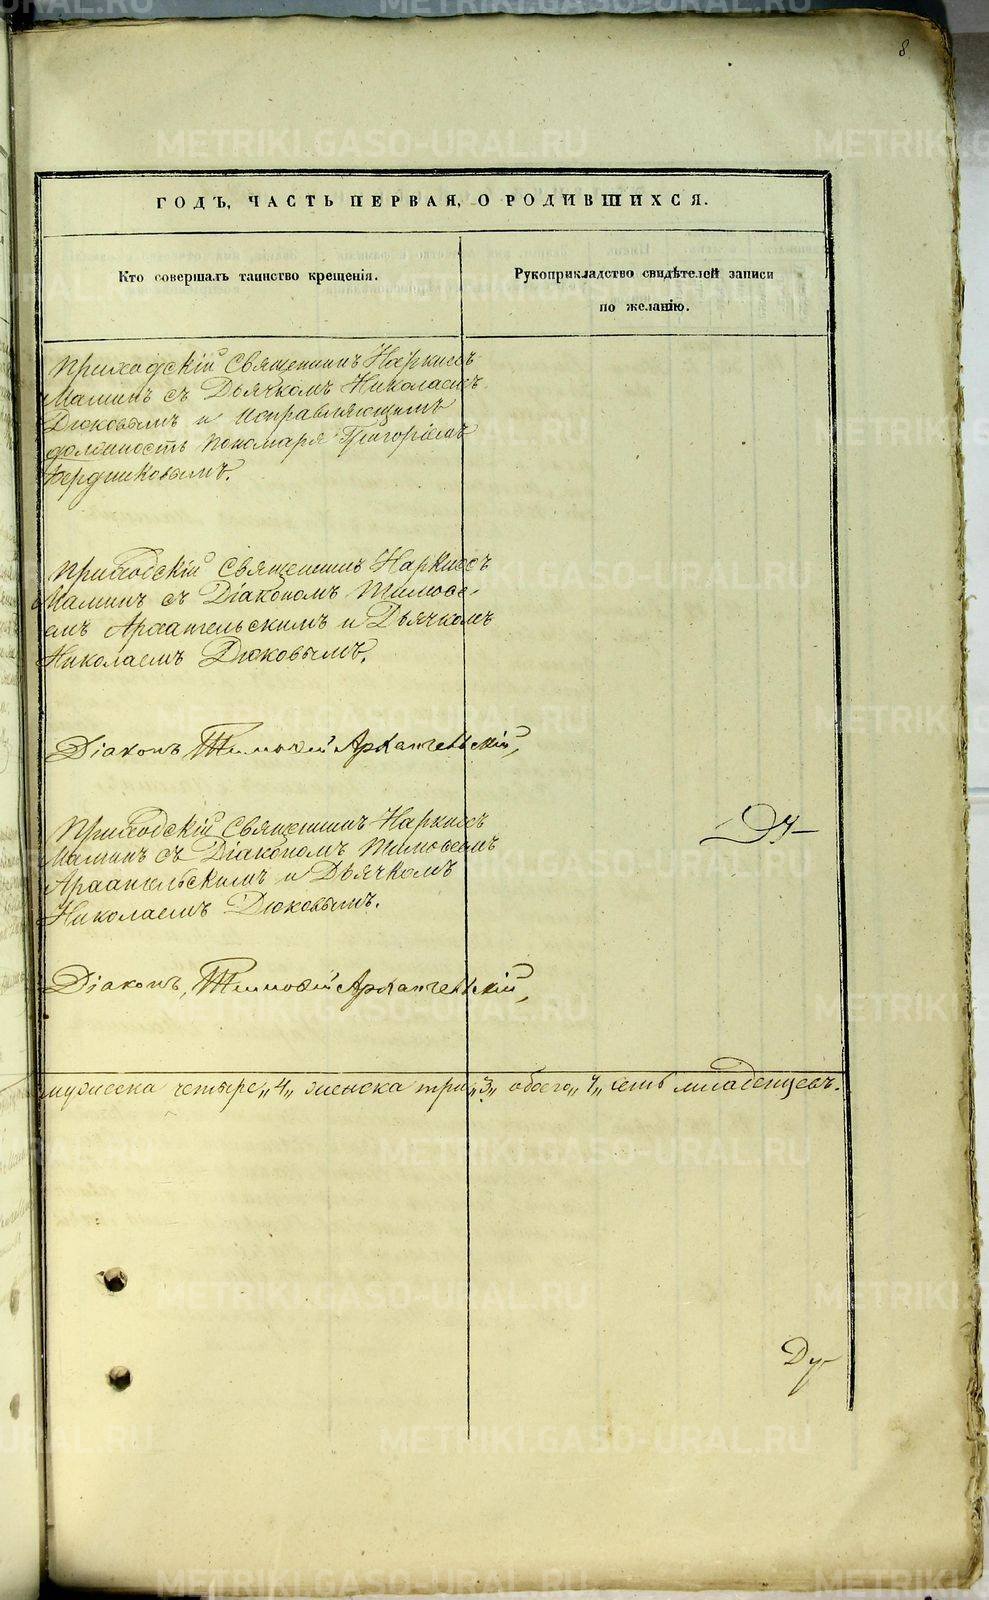 8
ГОДЪ, ЧАСТЬ ПЕРВАЯ, О РОДИВШИХСЯ.
Кто совершалъ таинство крещенія.
Рукоприкладство свидѣтелей записи
по желанію.
Приходскій Священникъ Наркисъ
Маминъ съ Дьячкомъ Николаемъ
Дюковымъ и исправляющимъ
должность Пономаря Григоріемъ
Бердниковымъ.
Приходскій Священникъ Наркисъ
Маминъ съ Діакономъ Тимоѳе-
емъ Архангельскимъ и Дьячкомъ
Николаемъ Дюковымъ.
Діаконъ Тимоѳей Архангельскій,
Приходскій Священникъ Наркисъ
Маминъ съ Діакономъ Тимоѳеемъ
Архангельскимъ и Дьячкомъ
Николаемъ Дюковымъ.
Діаконъ, Тимоѳей Архангельскій,
мужеска четыре „4„ женска три „3„ обоего „7„ семь младенцевъ.
METRIKI.GASO-URAL.RU